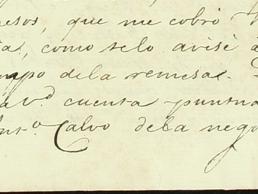 esos, que me cobró
ta, como selo avisé á
mpo dela remesa.
a v.d cuenta puntua
Ant.o Calvo dela nego